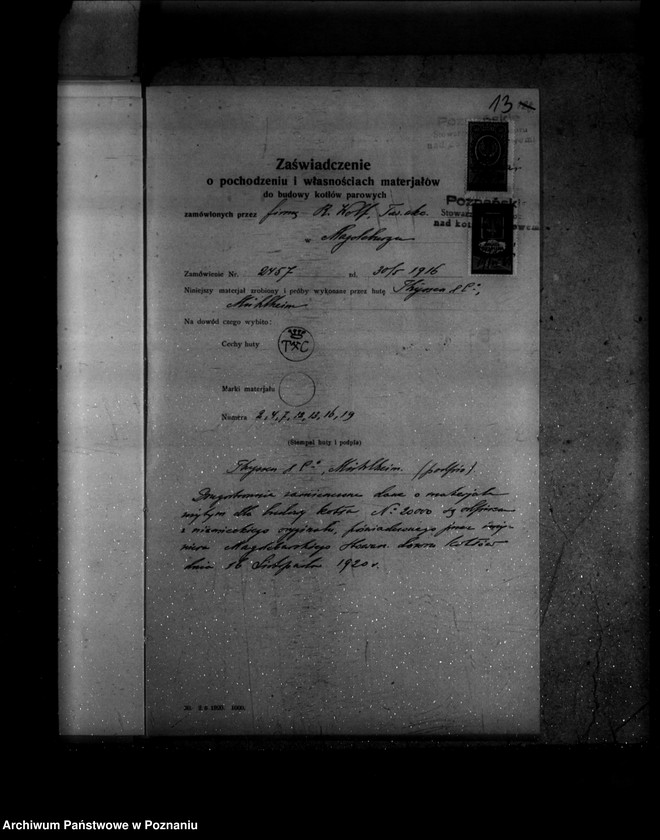 13
Poznański
Stowarz
nad kot
Zaświadczenie
o pochodzeniu i własnościach materjałów
do budowy kotłów parowych
zamówionych przez firmę R. Wolf, Tow. akc.
w Magdeburgu
Zamówienie Nr. 2457 z d. 30/5 1916
Niniejszy materjał zrobiony i próby wykonane przez hutę Thyssen & Co.,
Mühlheim
Na dowód czego wybito:
Cechy huty T C
Marki materjału
Numera 2, 4, 7, 12, 13, 16, 19
(Stempel huty i podpis)
Thyssen & Co., Mühlheim. (podpis)
Dwustronnie zamieszczone dane o materjale
użytym dla budowy kotła No 20000 są odpisem
z niemieckiego oryginału, poświadczonego przez inży-
niera Magdeburskiego Stowarz. Dozoru Kotłów
dnia 18 Listopada 1920 r.
Archiwum Państwowe w Poznaniu